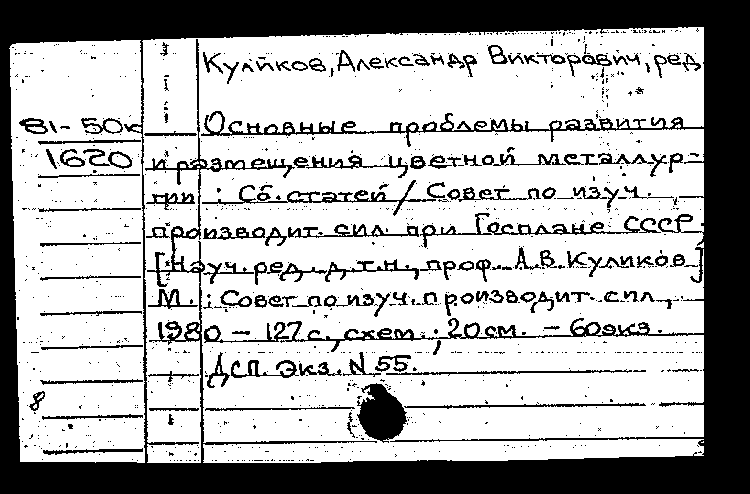 Куликов, Александр Викторович, ред.
81-50к
1620
Основные проблемы развития
и размещения цветной металлур-
гии : Сб. статей / Совет по изуч.
производит. сил при Госплане СССР;
[Науч. ред. д.т.н., проф. А.В. Куликов]
М. : Совет по изуч. производит. сил,
1980 – 127 с., схем. ; 20 см. – 60 экз.
ДСП. Экз. N 55.
8